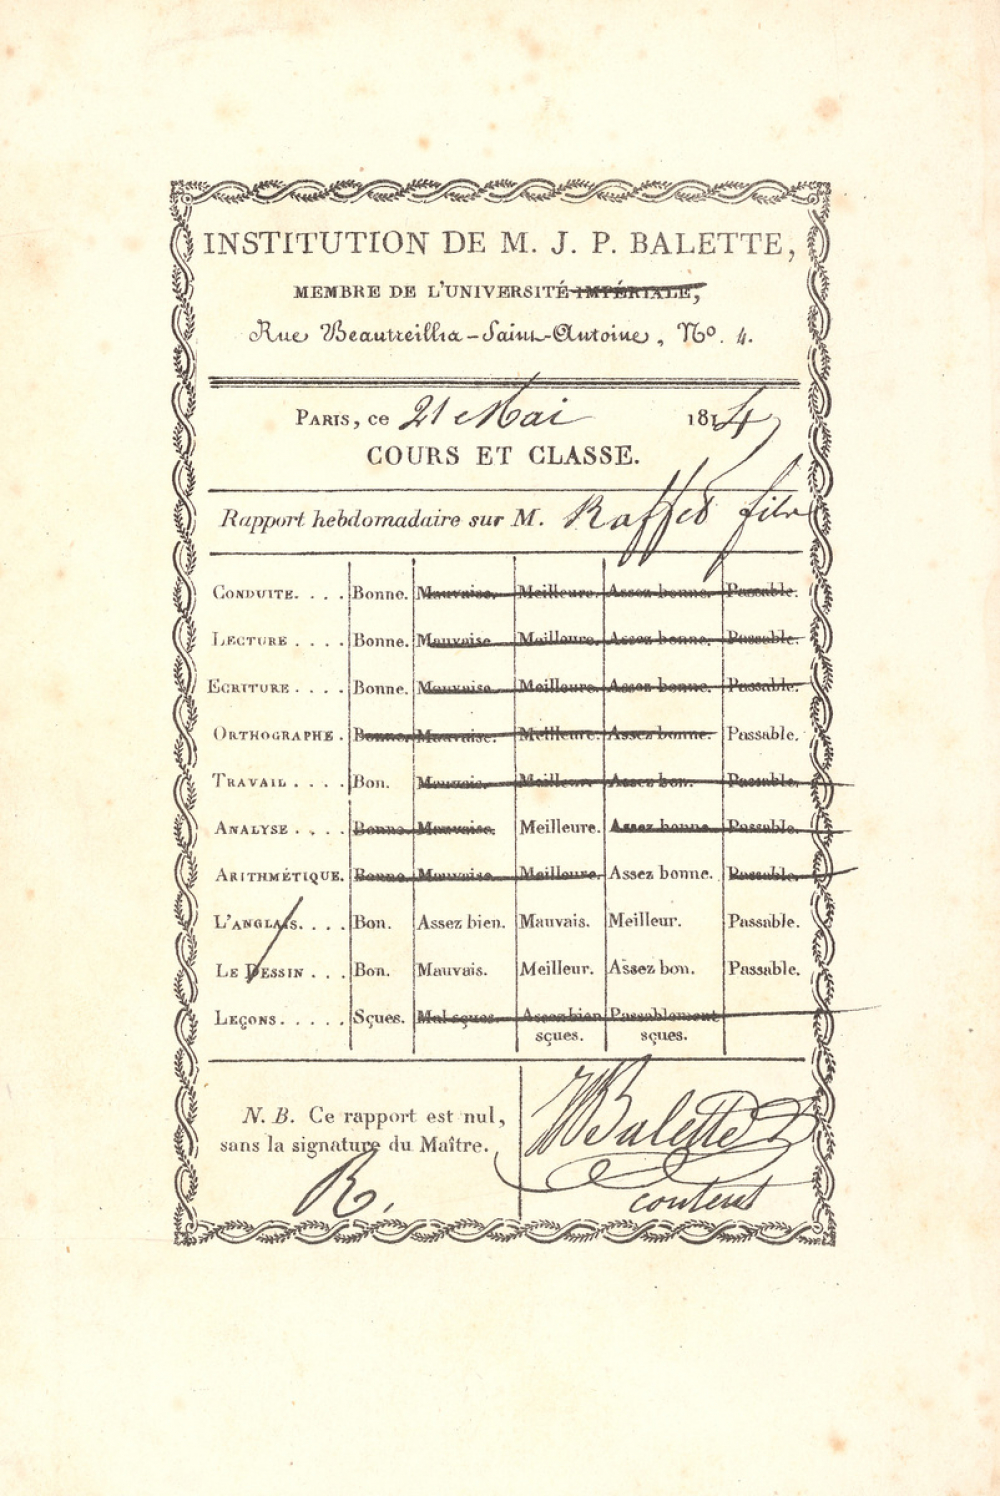 INSTITUTION DE M. J. P. BALETTE,
MEMBRE DE L'UNIVERSITÉ IMPÉRIALE,
Rue Beautreillis-Saint-Antoine, No. 4.
PARIS, ce 21 Mai 1814
COURS ET CLASSE.
Rapport hebdomadaire sur M. Raffet fils
CONDUITE. . . . Bonne. Mauvaise. Meilleure. Assez bonne. Passable.
LECTURE . . . . Bonne. Mauvaise Meilleure. Assez bonne. Passable.
ECRITURE . . . . Bonne. Mauvaise. Meilleure. Assez bonne. Passable.
ORTHOGRAPHE . Bonne. Mauvaise. Meilleure. Assez bonne. Passable.
TRAVAIL . . . . Bon. Mauvais. Meilleur. Assez bon. Passable.
ANALYSE . . . . Bonne. Mauvaise. Meilleure. Assez bonne. Passable.
ARITHMÉTIQUE. Bonne. Mauvaise. Meilleure. Assez bonne. Passable.
L'ANGLAIS. . . . Bon. Assez bien. Mauvais. Meilleur. Passable.
LE DESSIN . . . Bon. Mauvais. Meilleur. Assez bon. Passable.
LEÇONS. . . . . Sçues. Mal sçues. Assez bien sçues. Passablement sçues.
N. B. Ce rapport est nul,
sans la signature du Maître.
R.
Balette
content